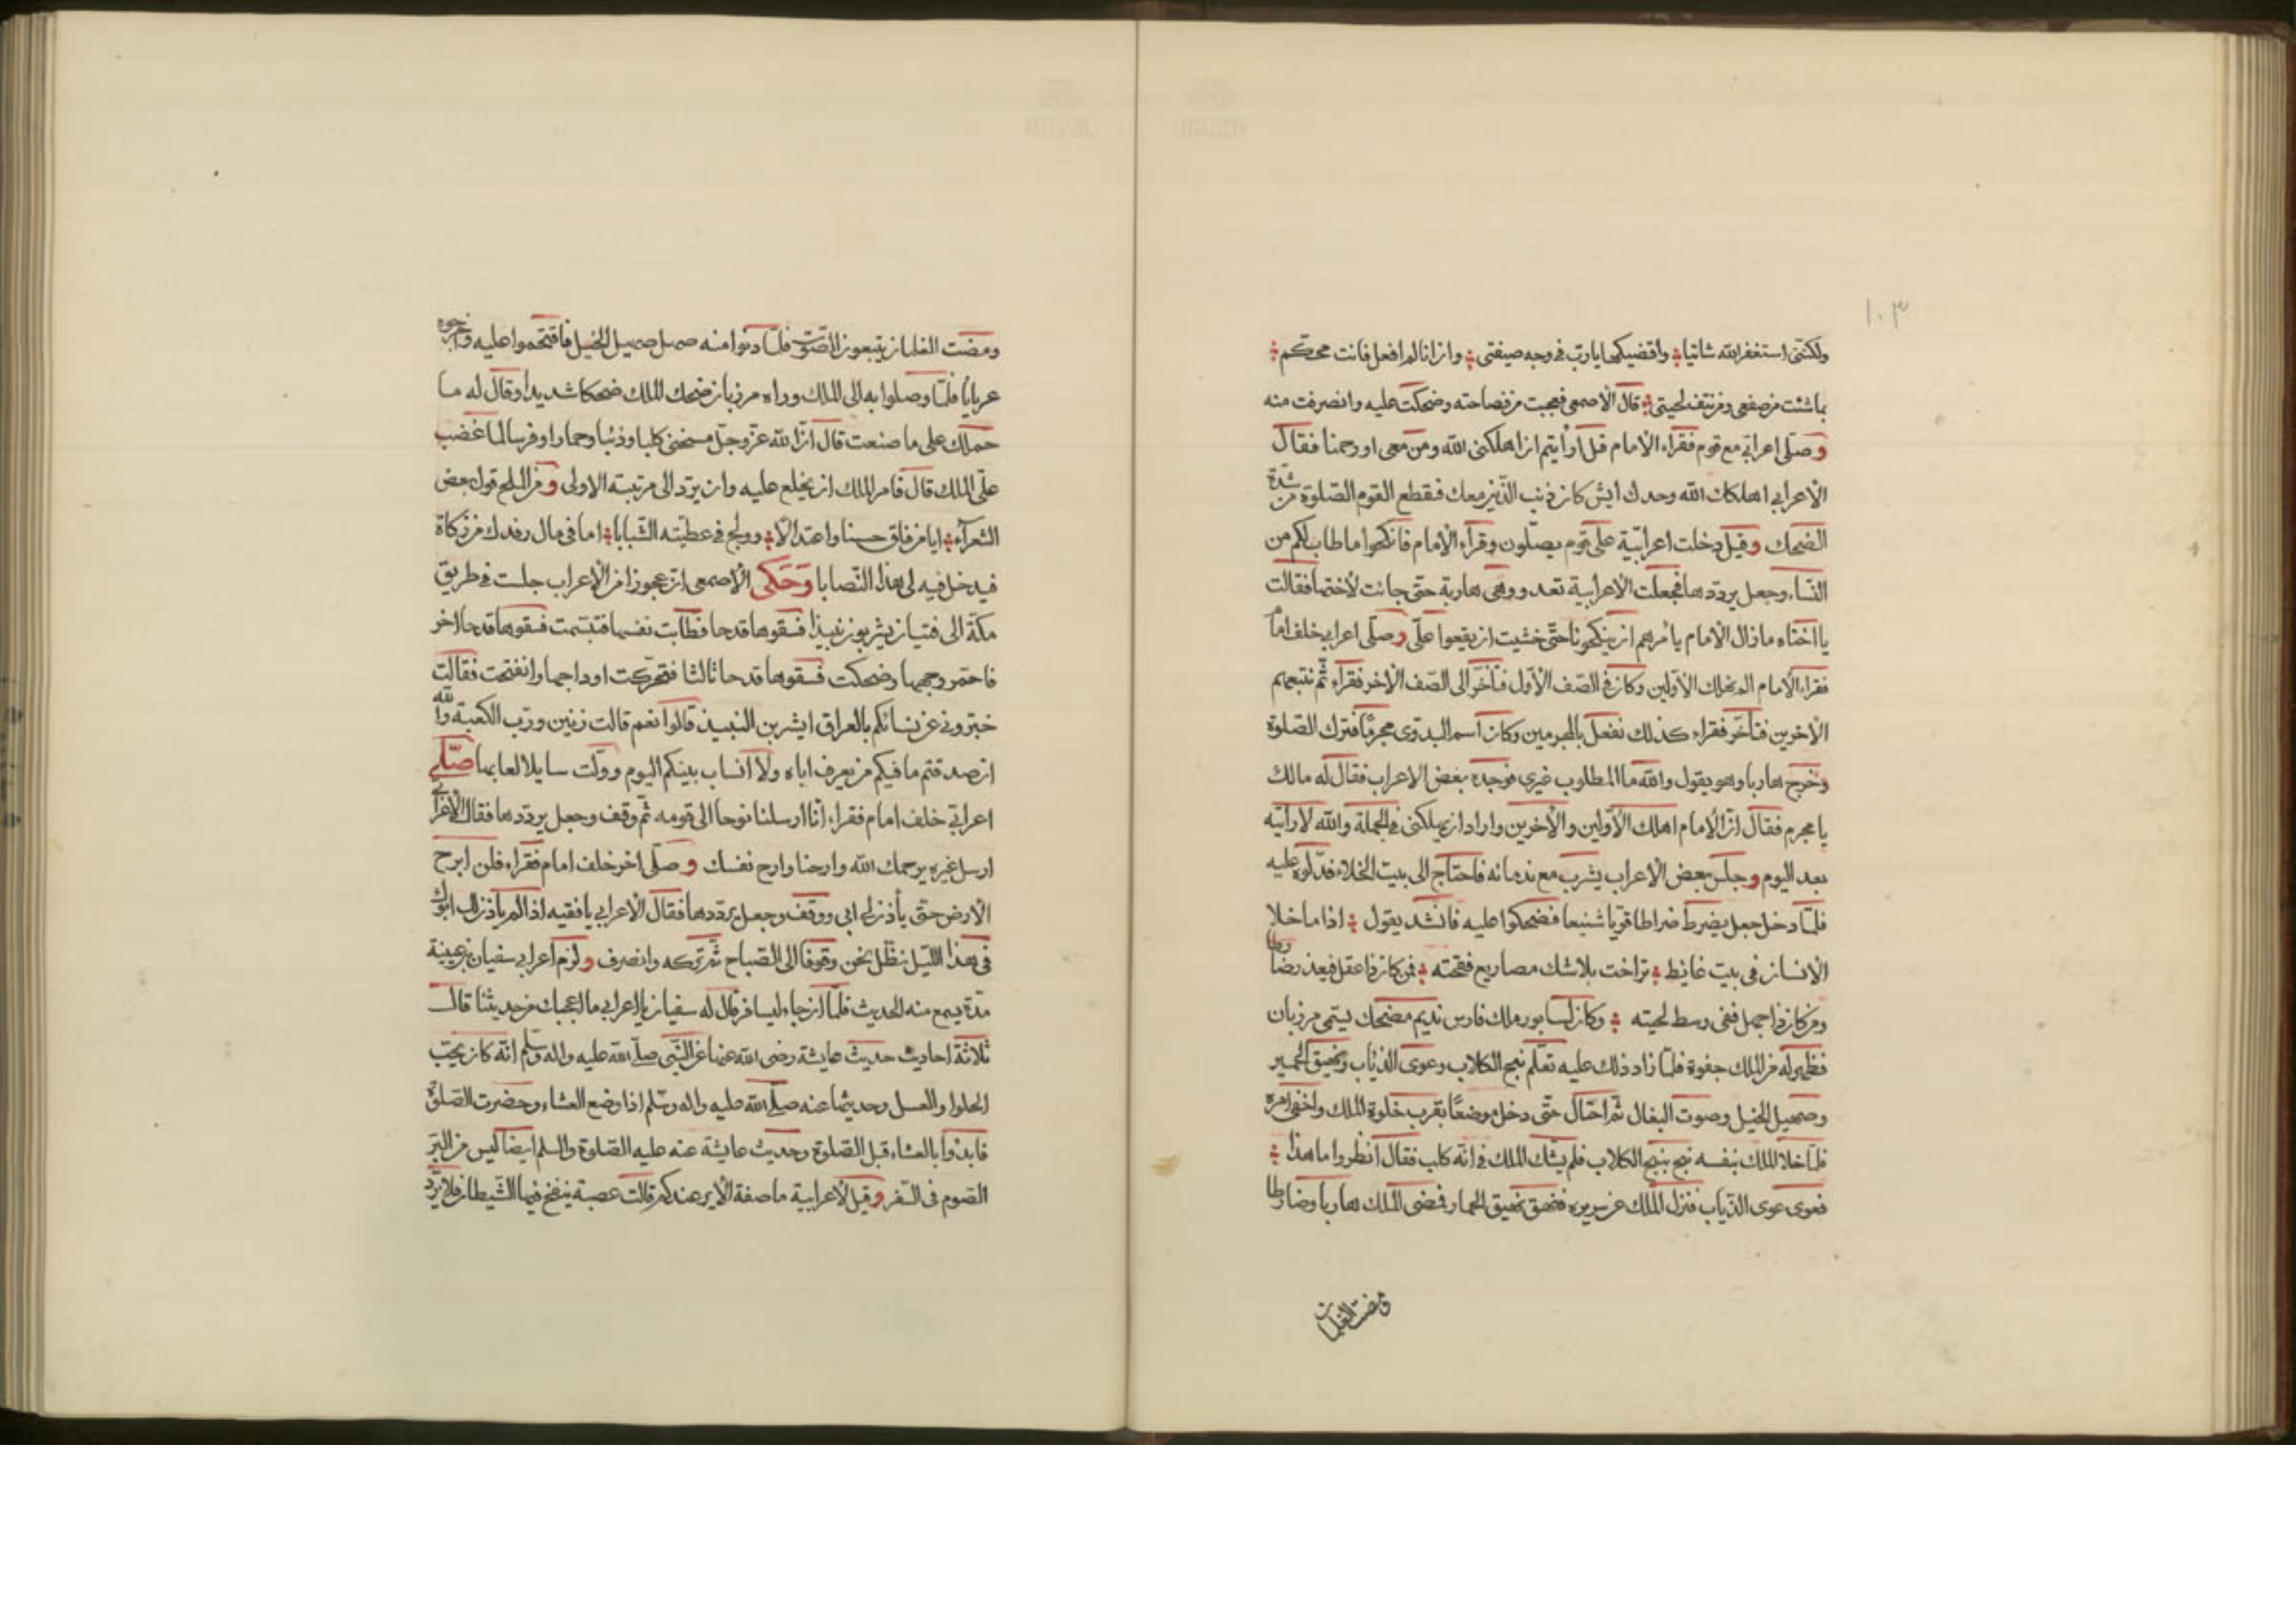 ١٠٣
ولكننى استغفر الله شاتيا واقضيكها يارب فى وجه صيفتى وان انا لم افعل فانت محكم
بما شئت من صفعى ومن نتف لحيتى قال الاصمعى فعجبت من فصاحته وضحكت عليه وانصرفت منه
وصلى اعرابى مع قوم فقراء الامام قل ارأيتم ان اهلكنى الله ومن معى او رحمنا فقال
الاعرابى اهلكك الله وحدك ايش كان ذنب الذين معك فقطع القوم الصلوة من شدة
الضحك وقيل دخلت اعرابية على قوم يصلون وقراء الامام فانكحوا ما طاب لكم من
النساء وجعل يرددها فجعلت الاعرابية تعدو وهى هاربة حتى جائت لاختها فقالت
يا اختاه ما زال الامام يأمرهم ان ينكحونا حتى خشيت ان يقعوا على وصلى اعرابى خلف امام
فقراء الامام الم نهلك الاولين وكان فى الصف الاول فتأخر الى الصف الاخر فقراء ثم نتبعهم
الاخرين فتأخر فقراء كذلك نفعل بالمجرمين وكان اسم البدوى مجرما فترك الصلوة
وخرج هاربا وهو يقول والله ما المطلوب غيرى فوجده بعض الاعراب فقال له مالك
يا مجرم فقال ان الامام اهلك الاولين والاخرين واراد ان يهلكنى فى الجملة والله لا رأيته
بعد اليوم وجلس بعض الاعراب يشرب مع ندمائه فاحتاج الى بيت الخلاء فدلوه عليه
فلما دخل جعل يضرط ضراطا قويا شنيعا فضحكوا عليه فانشد يقول اذا ما خلا
الانسان فى بيت غائط تراخت بلا شك مصاريع فقحته فمن كان ذا عقل فيعذر ضارطا
ومن كان ذا جهل ففى وسط لحيته وكان لسابور ملك فارس نديم مضحك يسمى مرزبان
فظهر له من الملك جفوة فلما زاد ذلك عليه تعلم نبح الكلاب وعوى الذئاب ونهيق الحمير
وصهيل الخيل وصوت البغال ثم احتال حتى دخل موضعا بقرب خلوة الملك واخفى امره
فلما خلا الملك بنفسه نبح نبيح الكلاب فلم يشك الملك فى انه كلب فقال انظروا ما هذا
فعوى عوى الذئاب فنزل الملك عن سريره فنهق نهيق الحمار فمضى الملك هاربا وضارطا
ومضت الغلمان
ومضت الغلمان يتبعون الصوت فلما دنوا منه صهل صهيل الخيل فاقتحموا عليه واخرجوه
عريانا فلما وصلوا به الى الملك وراه مرزبان ضحك الملك ضحكا شديدا وقال له ما
حملك على ما صنعت قال ان الله عز وجل مسخنى كلبا وذئبا وحمارا وفرسا لما غضب
على الملك قال فامر الملك ان يخلع عليه وان يرد الى مرتبته الاولى ومن الملح قول بعض
الشعراء ايا من فاق حسنا واعتدالا وولج فى عطيته الشبابا اما فى مال رفدك من زكاة
فيدخل فيه لى هذا النصابا وحكى الاصمعى ان عجوزا من الاعراب جلست فى طريق
مكة الى فتيان يشربون نبيذا فسقوها قدحا فطابت نفسها فتبسمت فسقوها قدحا اخر
فاحمر وجهها وضحكت فسقوها قدحا ثالثا فتحركت اوداجها وانفتحت فقالت
خبرونى عن نسائكم بالعراق ايشربن النبيذ قالوا نعم قالت زنين ورب الكعبة والله
ان صدقتم ما فيكم من يعرف اباه ولا انساب بينكم اليوم وولت سايلا لعابها صلى
اعرابى خلف امام فقراء انا ارسلنا نوحا الى قومه ثم وقف وجعل يرددها فقال الاعرابى
ارسل غيره يرحمك الله وارحنا وارح نفسك وصلى اخر خلف امام فقراء فلن ابرح
الارض حتى يأذن لى ابى ووقف وجعل يرددها فقال الاعرابى يا فقيه اذا لم يأذن لك ابوك
فى هذا الليل نظل نحن وقوفا الى الصباح ثم تركه وانصرف ولزم اعرابى سفيان بن عيينة
مدة يسمع منه الحديث فلما ان جاء ليسافر قال له سفيان يا اعرابى ما اعجبك من حديثنا قال
ثلاثة احاديث حديث عايشة رضى الله عنها عن النبى صلى الله عليه واله وسلم انه كان يحب
الحلوا والعسل وحديثها عنه صلى الله عليه واله وسلم اذا وضع العشاء وحضرت الصلوة
فابدؤا بالعشاء قبل الصلوة وحديث عايشة عنه عليه الصلوة والسلم ايضا ليس من البر
الصوم فى السفر وقيل لاعرابية ما صفة الاير عندكم قالت عصبة ينفخ فيها الشيطان فلا يرد